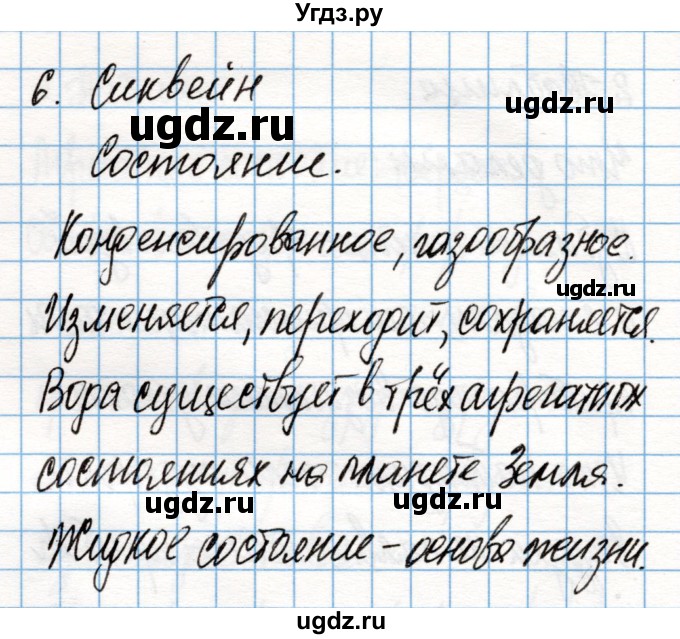 Угдз.ру
6. Синквейн
ugdz.ru
ugdz.ru
Состояние.
Конденсированное, газообразное.
ugdz.ru
Изменяется, переходит, сохраняется.
Вода существует в трёх агрегатных
состояниях на планете Земля.
ugdz.ru
ugdz.ru
Жидкое состояние – основа жизни.
ugdz.ru